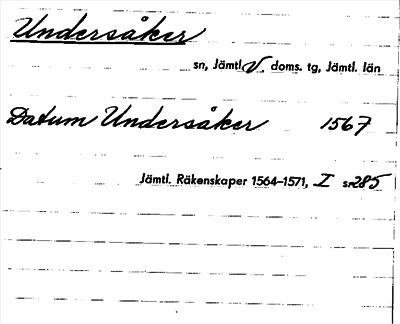 Undersåker
sn, Jämtl. V. doms. tg, Jämtl. län
Datum Undersåker 1567
Jämtl. Räkenskaper 1564–1571, I s. 285